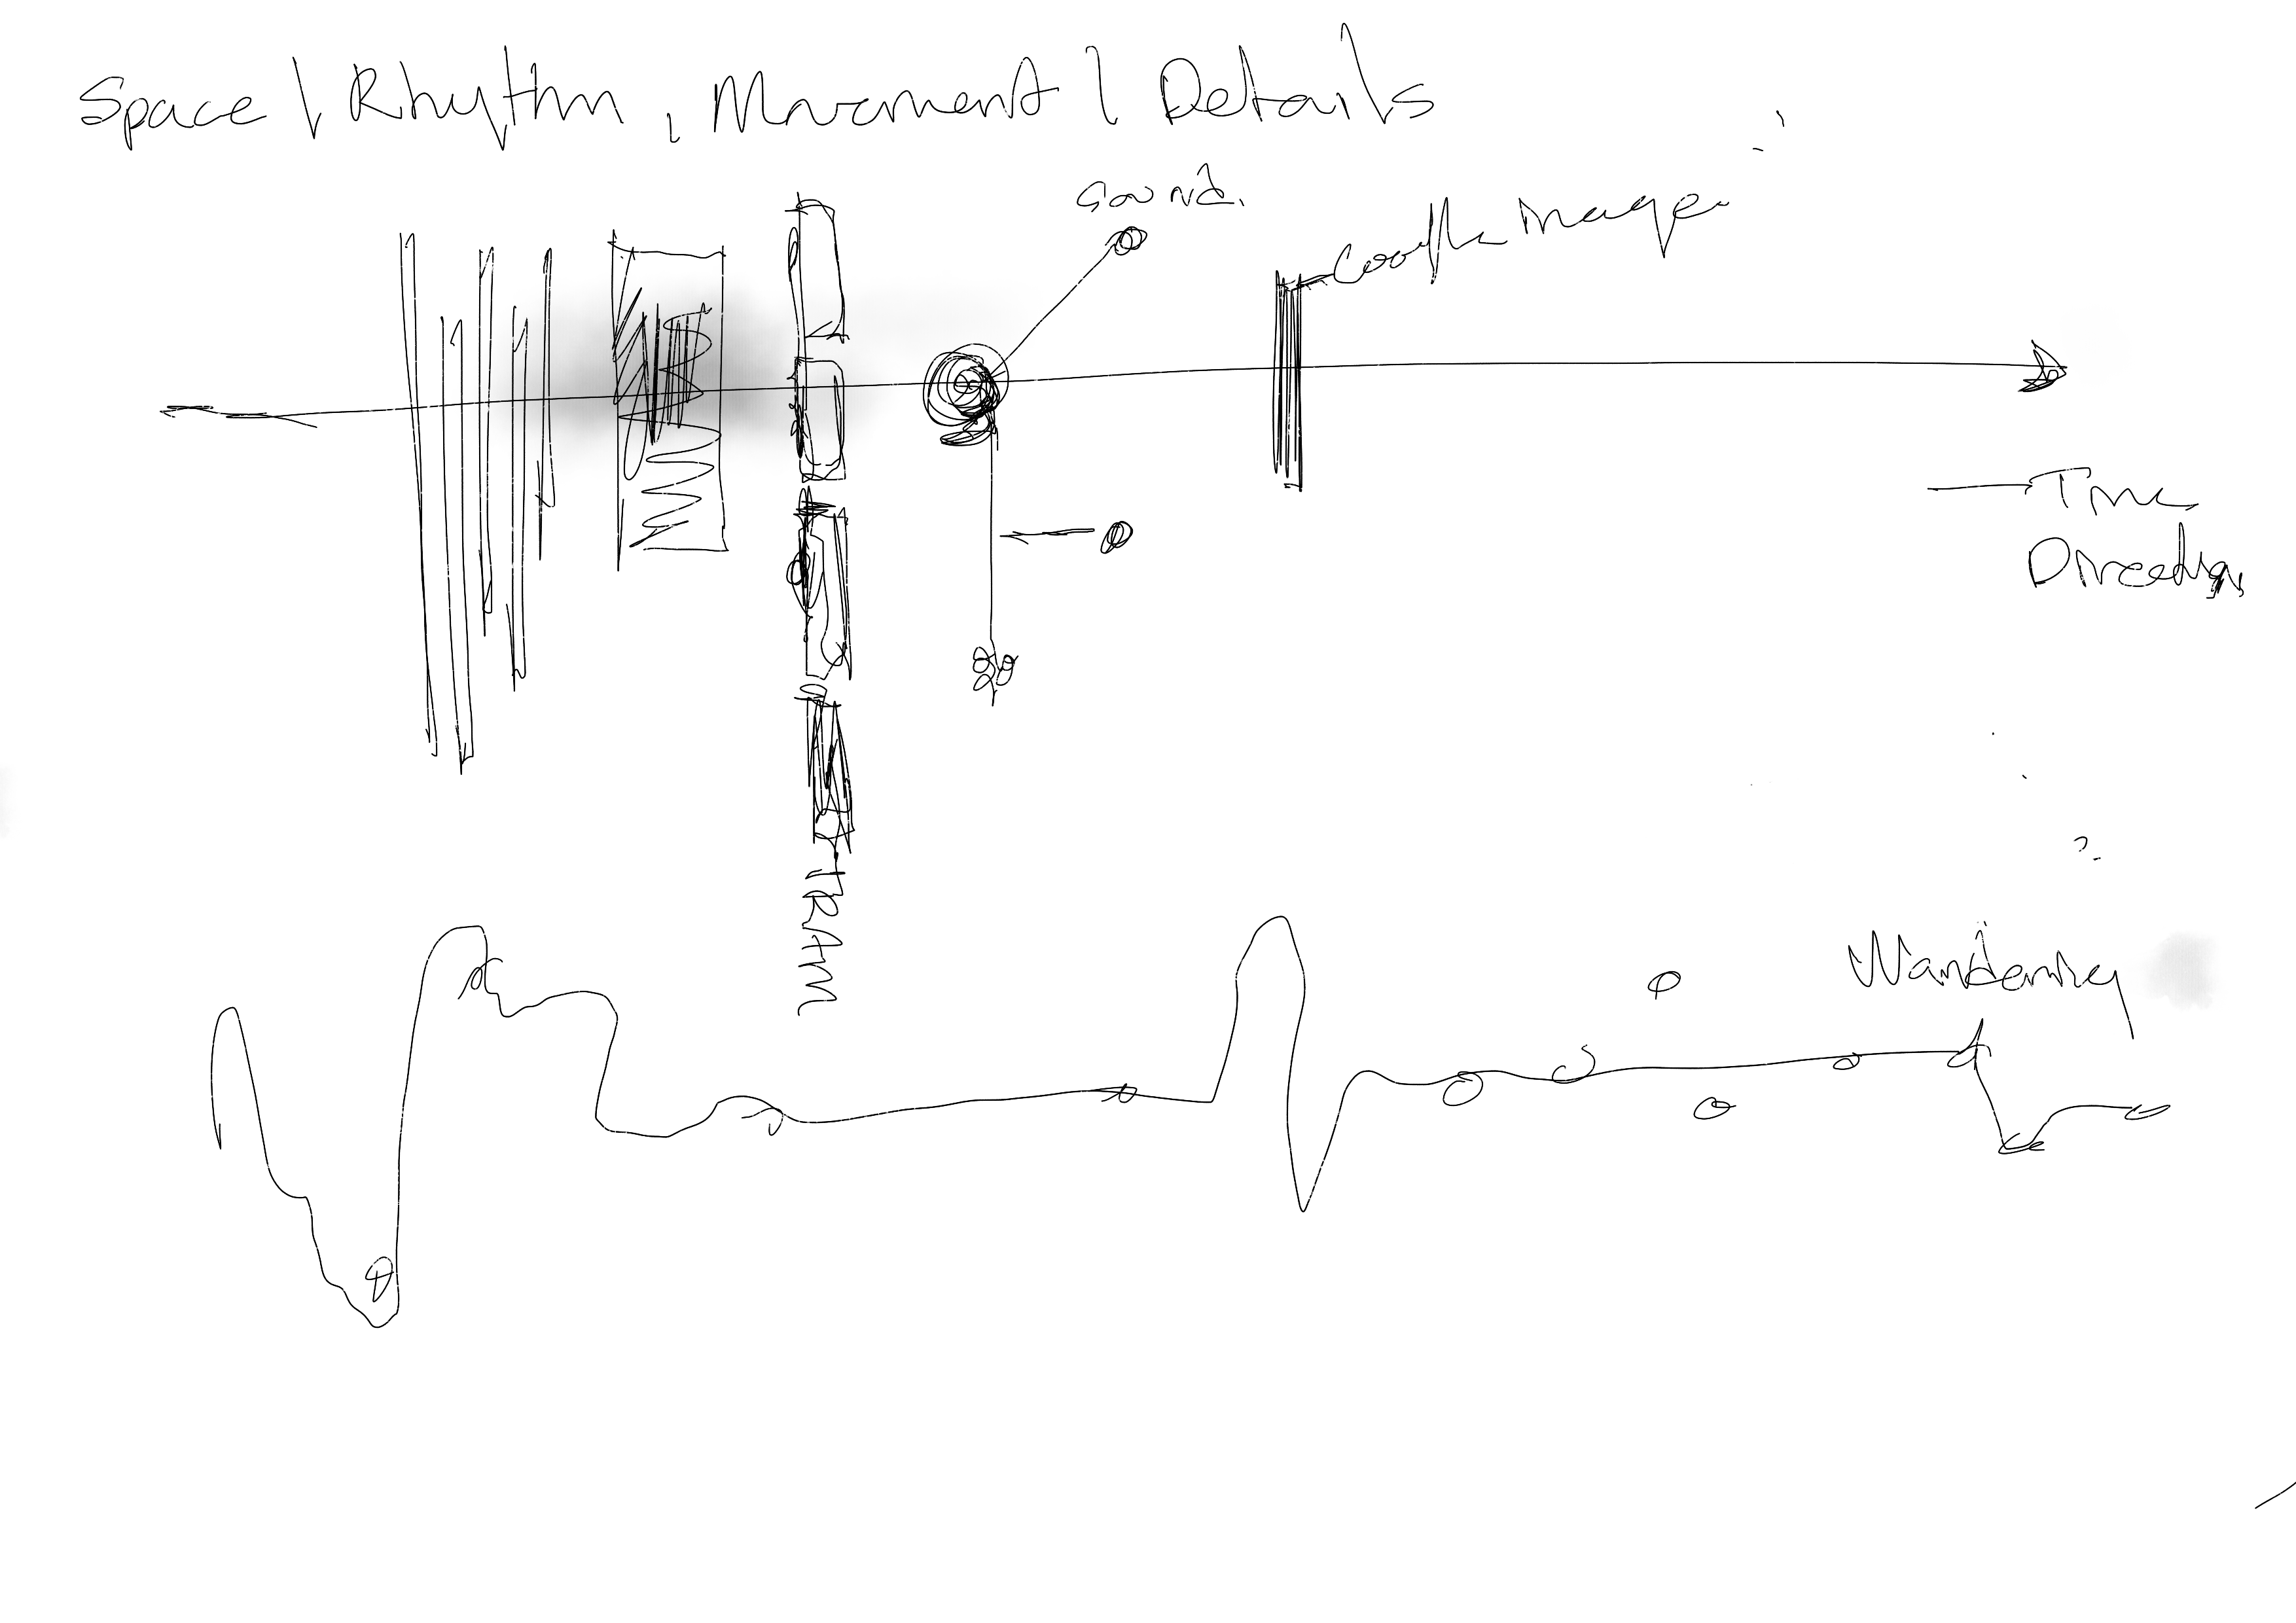 Space | Rhythm, Movement | Details
Sound.
image
Time
Direction
TRAM
Wandering